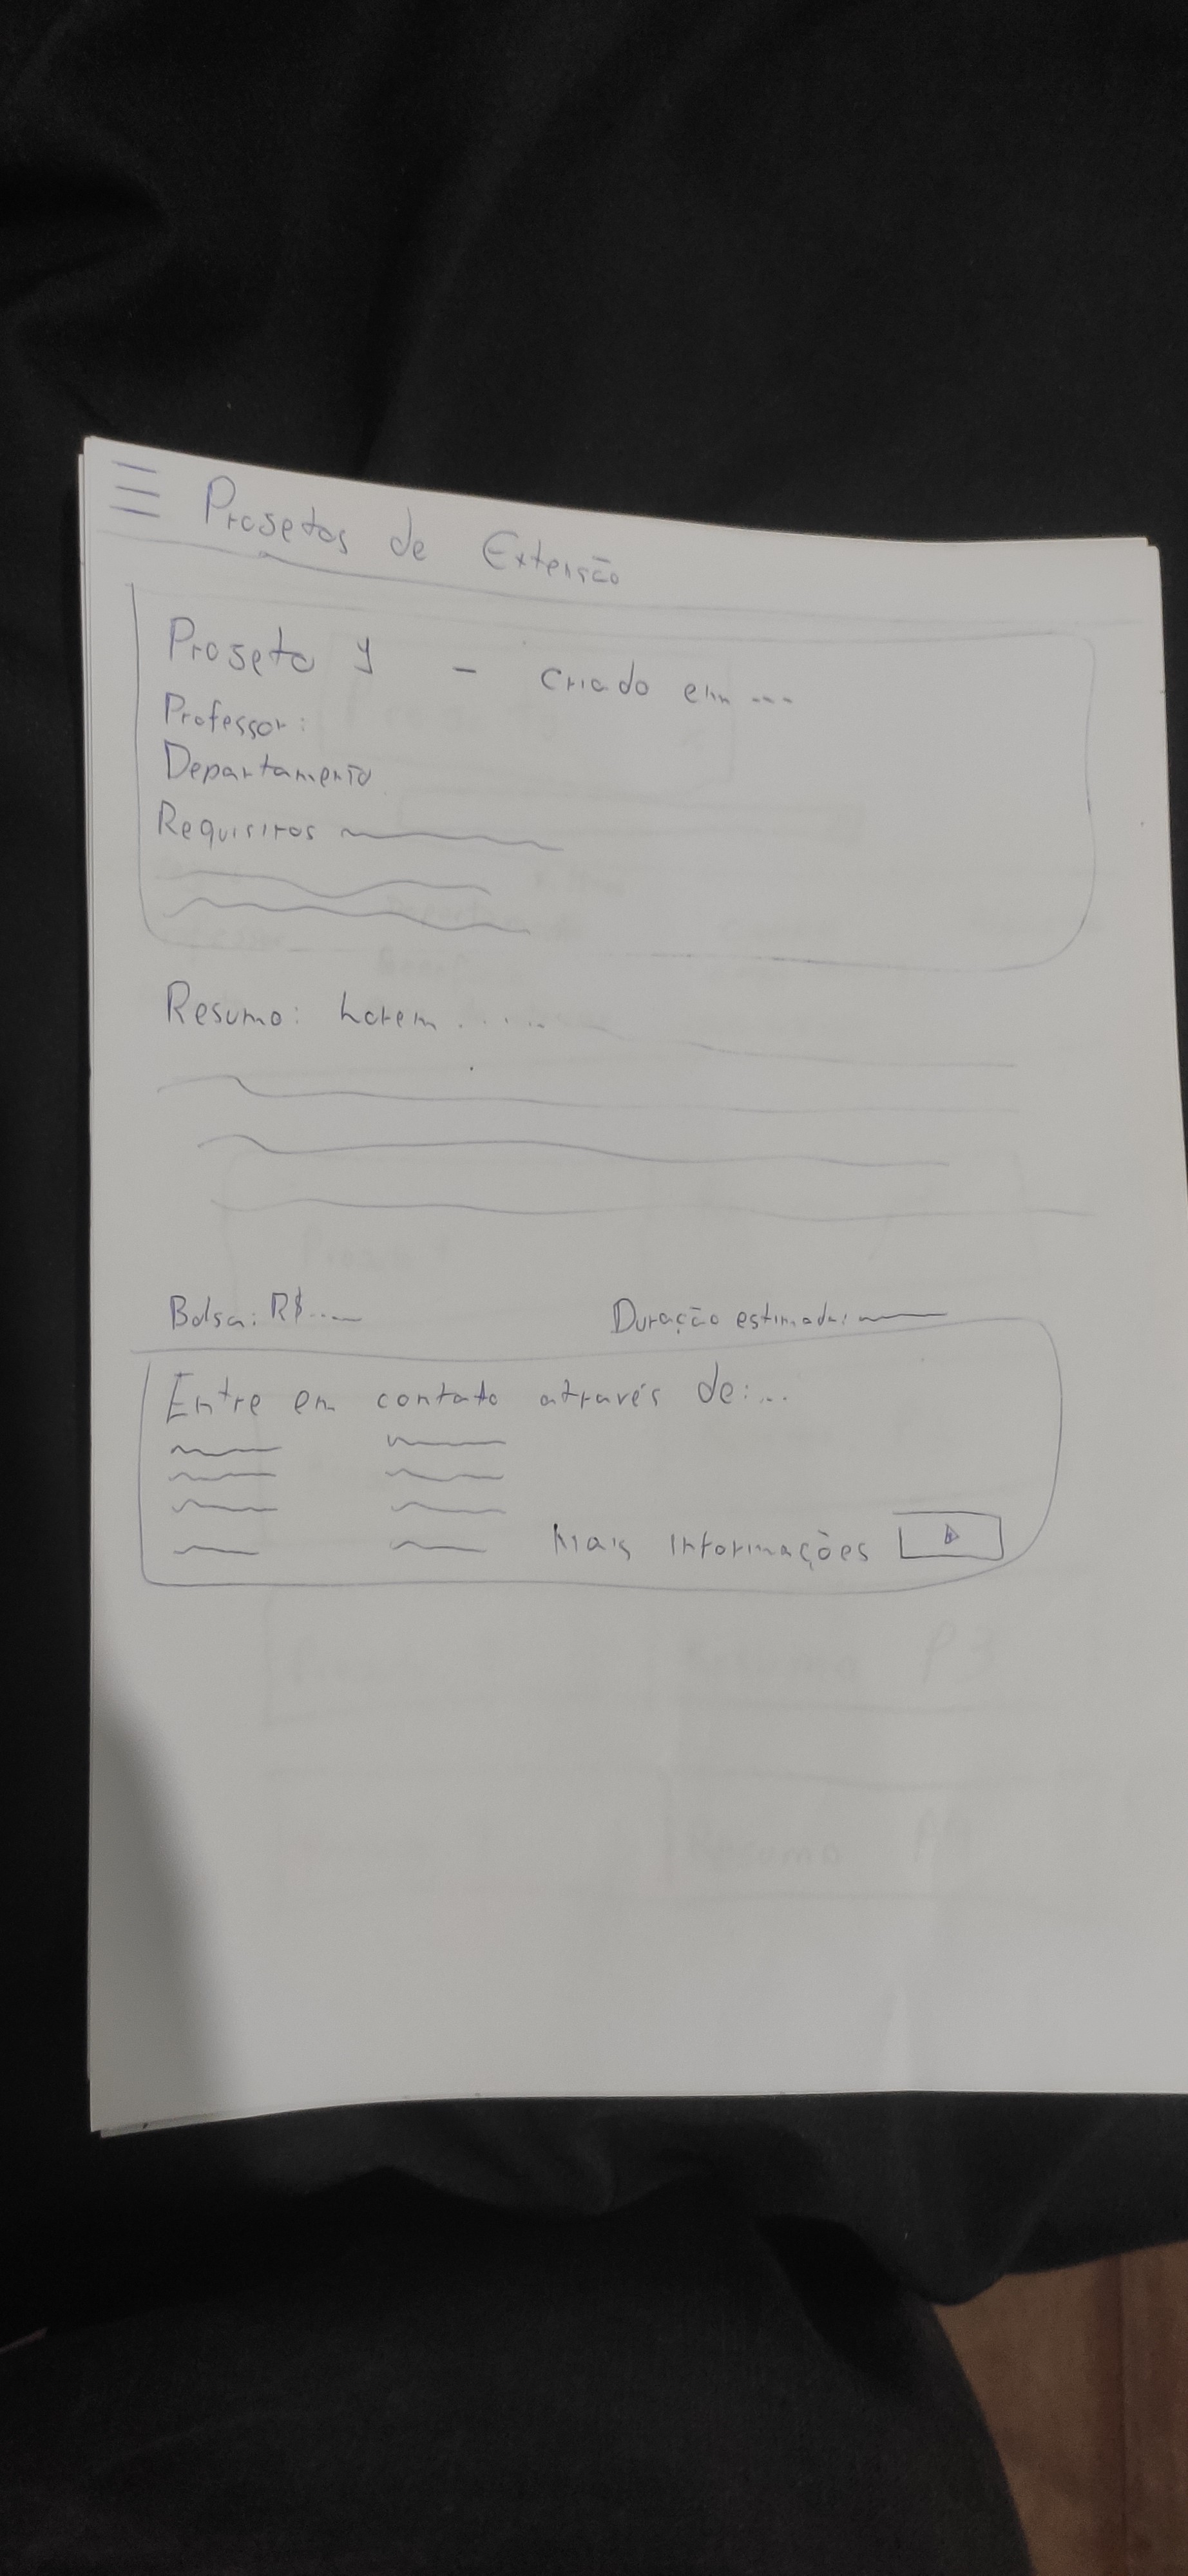 Projetos de Extensão
Projeto 1 - criado em ---
Professor:
Departamento
Requisitos
Resumo: Lorem .....
Bolsa: R$...
Duração estimada:
Entre em contato através de:...
Mais informações